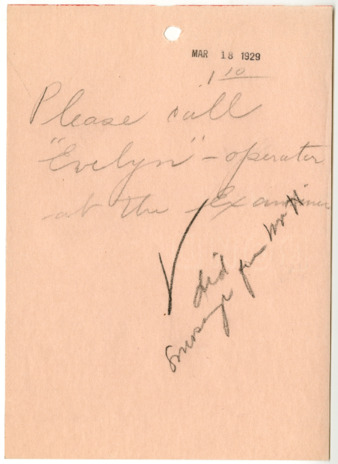 MAR 18 1929
1 10
Please call
"Evelyn" - operator
at the Examiner
did
message from Mr H